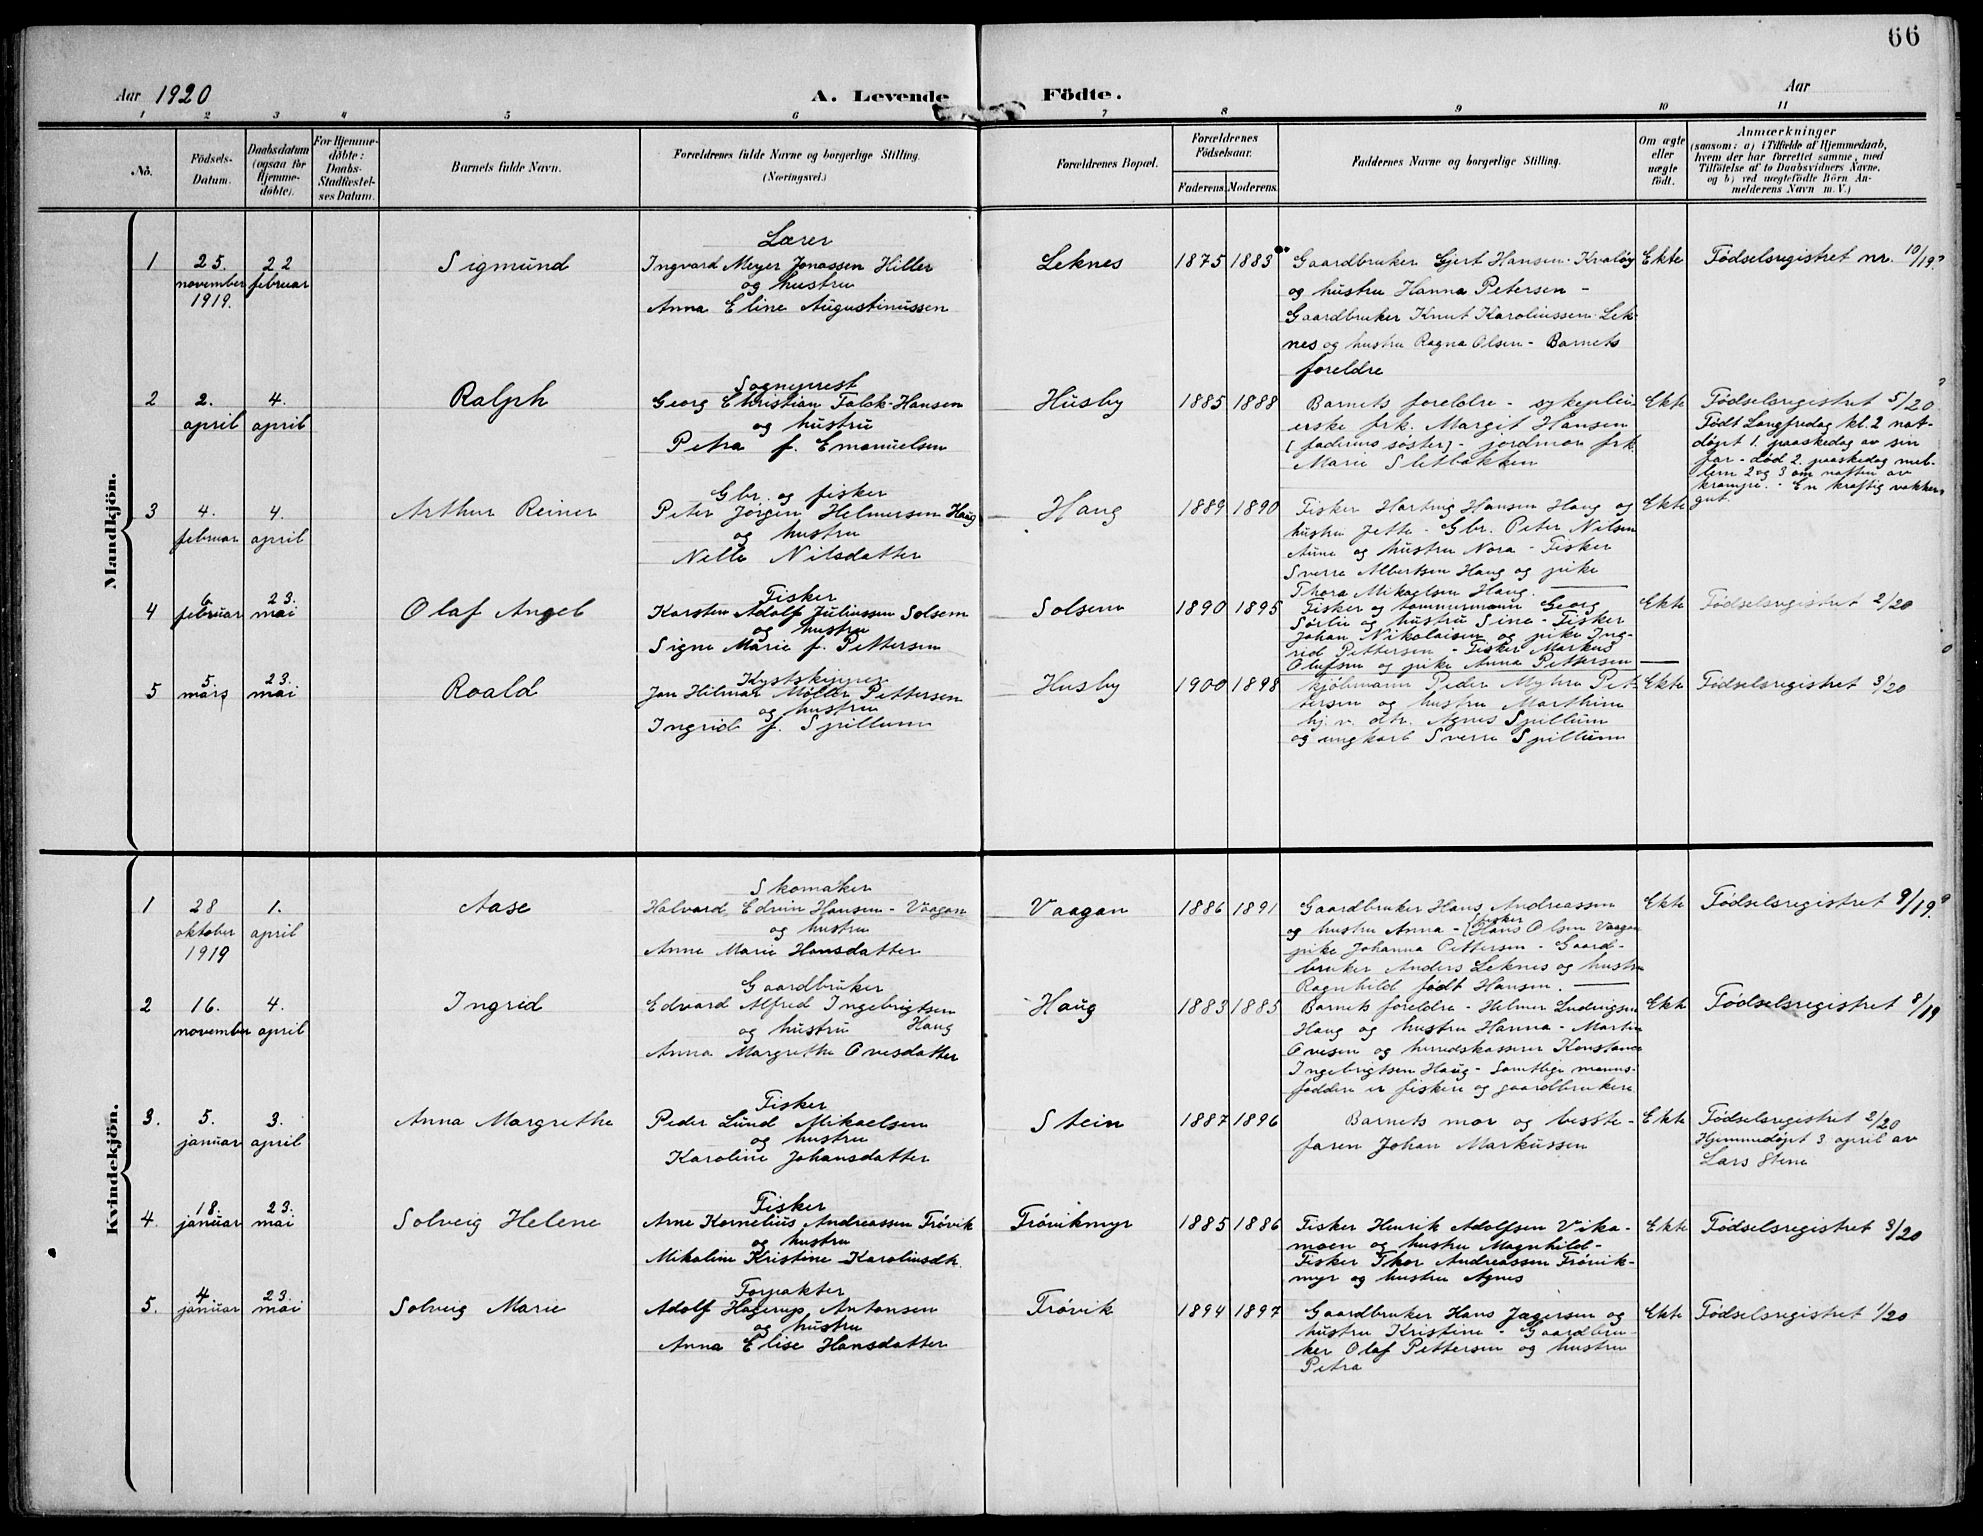 66
Aar 1920
A. Levende Födte.
Aar
1 2 3 4 5 6 7 8 9 10 11
No.
Födsels-
Datum.
Daabsdatum
(ogsaa for
Hjemme-
döbte).
For Hjemme-
döbte:
Daabs-
Stadfæstel-
ses Datum.
Barnets fulde Navn.
Forældrenes fulde Navne og borgerlige Stilling.
(Næringsvei.)
Forældrenes Bopæl.
Forældrenes
Födselsaar.
Faderens. Moderens.
Faddernes Navne og borgerlige Stilling.
Om ægte
eller
uægte
født.
Anmærkninger
(saasom: a) i Tilfælde af Hjemmedaab,
hvem der har forrettet samme, med
Tilföielse af to Daabsvidners Navne,
og b) ved uægtefödte Börn An-
melderens Navn m. V.)
Mandkjön.
1
25.
november
1919.
22
februar
Sigmund
Lærer
Ingvard Meyer Jonassen Hiller
og hustru
Anna Eline Augustinussen
Leknes
1875 1883
Gaardbruker Gjert Hansen Kvaløy
og hustru Hanna Petersen -
Gaardbruker Knut Karoliussen Lek-
nes og hustru Ragna Olsen - Barnets
foreldre
Ekte
Fødselsregistret nr. 10/19?
2
2.
april
4.
april
Ralph
Sogneprest
Georg Christian Falck-Hansen
og hustru
Petra f. Emanuelsen
Husby
1885 1888
Barnets foreldre - sykeplei-
erske frk. Margit Hansen
(faderens søster) - jordmor frk
Marie Sletbakken
Ekte
Fødselsregistret 5/20
Født Langfredag kl. 2 nat-
døpt 1. paaskedag av sin
far - død 2. paaskedag mel-
lem 2 og 3 om natten av
krampe. - En kraftig vakker
gut.
3
4.
februar
4.
april
Arthur Reiner
Gbr. og fisker
Peter Jørgen Helmersen Haug
og hustru
Nelle Nilsdatter
Haug
1889 1890
Fisker Hartvig Hansen Haug og
hustru Jette - Gbr. Peter Nilsen
Aune og hustru Nora - Fisker
Sverre Albertsen Haug og pike
Thora Mikaelsen Haug.
Ekte
4
6.
februar
23.
mai
Olaf Angel
Fisker
Karsten Adolf Juliussen Solsem
og hustru
Signe Marie f. Pettersen
Solsem
1890 1895
Fisker og tømmermann Georg
Sørlie og hustru Sine - Fisker
Johan Nikolaisen og pike Ing-
rid Pettersen - Fisker Markus
Olufsen og pike Anna Pettersen
Ekte
Fødselsregistret 2/20
5
5.
mars
23.
mai
Roald
Kystskipper
Jon Hilmar Møller Pettersen
og hustru
Ingrid f. Spillum
Husby
1900 1898
Kjøbmann Peder Myhre Pet-
tersen og hustru Marthine
hj. v. dtr. Agnes Spillum
og ungkarl Sverre Spillum
Ekte
Fødselsregistret 3/20
Kvindekjön.
1
28
oktober
1919
1.
april
Aase
Skomaker
Halvard Edvin Hansen - Vaagan
og hustru
Anne Marie Hansdatter
Vaagan
1886 1891
Gaardbruker Hans Andreassen
og hustru Anna - (Fisker) Hans Olsen Vaagan
pike Johanna Pettersen - Gaard-
bruker Anders Leknes og hustru
Ragnhild født Hansen.
Ekte
Fødselsregistret 9/19?
2
16.
november
4.
april
Ingrid
Gaardbruker
Edvard Alfred Ingebrigtsen
og hustru Haug
Anna Margrethe Ovesdatter
Haug
1883 1885
Barnets foreldre - Helmer Ludvigsen
Haug og hustru Hanna - Martin
Ovesen og herredskasserer Konstanse
Ingebrigtsen Haug - Samtlige manns-
faddere er fiskere og gaardbrukere
Ekte
Fødselsregistret 8/19
3.
5.
januar
3.
april
Anna Margrethe
Fisker
Peder Lund Mikaelsen
og hustru
Karoline Johansdatter
Stein
1887 1896
Barnets mor og besste-
faren Johan Markussen
Ekte
Fødselsregistret 2/20
Hjemmedøpt 3 april av
Lars Stene
4.
18.
januar
23.
mai
Solveig Helene
Fisker
Arne Kornelius Andreassen Frøvik
og hustru
Mikaline Kristine Karoliusdtr.
Frøvikmyr
1885 1886
Fisker Henrik Adolfsen Vika-
moen og hustru Magnhild -
Fisker Thor Andreassen Frøvik-
myr og hustru Agnes
Ekte
Fødselsregistret 3/20
5.
4.
januar
23.
mai
Solveig Marie
Forpakter
Adolf Hagerup Antonsen
og hustru
Anna Elise Hansdatter
Frøvik
1894 1897
Gaardbruker Hans Jægersen og
hustru Kristine - Gaardbru-
ker Olaf Pettersen og hustru
Petra
Ekte
Fødselsregistret 1/20